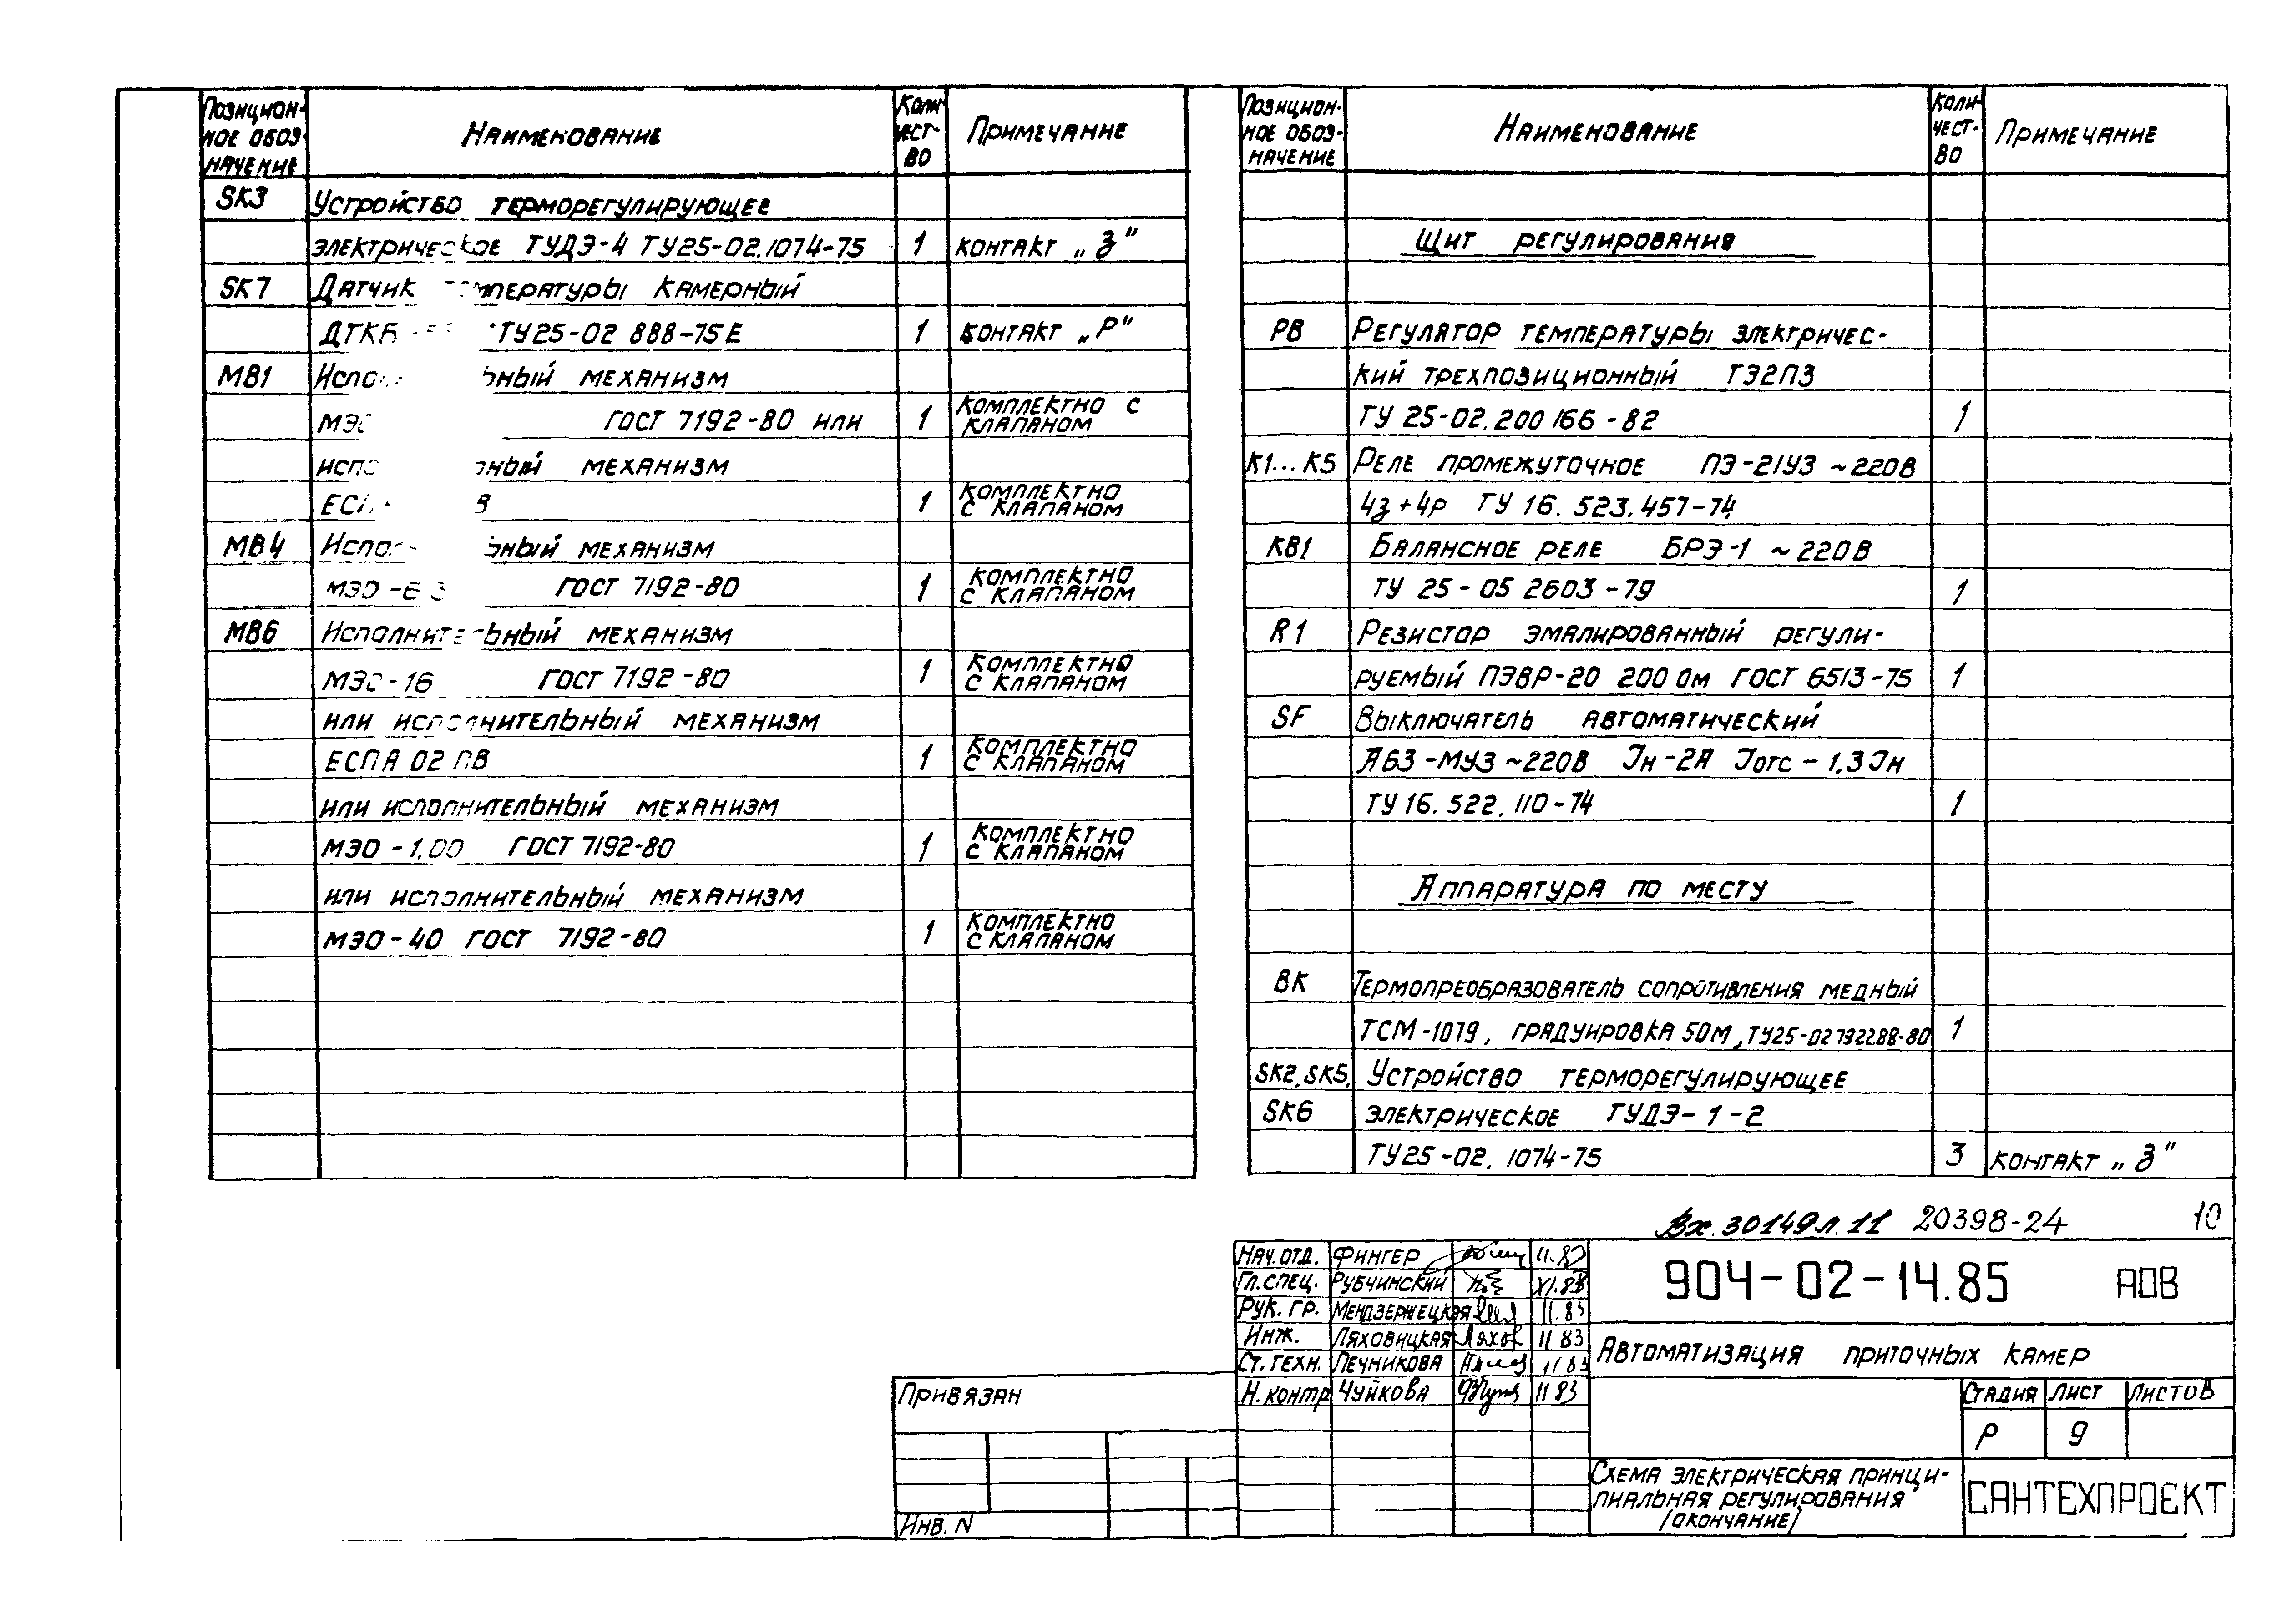 Позицион-
ное обоз-
начение
Наименование
Коли
чест-
во
Примечание
SK3
Устройство терморегулирующее
электрическое ТУДЭ-4 ТУ25-02.1074-75 1 контакт „З"
SK7
Датчик температуры камерный
ДТКБ ТУ25-02 888-75Е 1 контакт „Р"
МВ1
механизм
ГОСТ 7192-80 или 1 комплектно с
клапаном
механизм
1 комплектно
с клапаном
МВ4
механизм
ГОСТ 7192-80 1 комплектно
с клапаном
МВ6 Исполнительный механизм
МЭО-16 ГОСТ 7192-80 1 комплектно
с клапаном
или исполнительный механизм
ЕСПА 02 ПВ 1 комплектно
с клапаном
или исполнительный механизм
МЭО-1,00 ГОСТ 7192-80 1 комплектно
с клапаном
или исполнительный механизм
МЭО-40 ГОСТ 7192-80 1 комплектно
с клапаном
Позицион-
ное обоз-
начение
Наименование
Коли-
чест-
во
Примечание
Щит регулирования
РВ Регулятор температуры электричес-
кий трехпозиционный ТЭ2П3
ТУ 25-02.200 166-82 1
К1...К5 Реле промежуточное ПЭ-21У3 ~220В
4з+4р ТУ 16.523.457-74
КВ1 Балансное реле БРЭ-1 ~220В
ТУ 25-05 2603-79 1
R1 Резистор эмалированный регули-
руемый ПЭВР-20 200 Ом ГОСТ 6513-75 1
SF Выключатель автоматический
А63-МУ3 ~220В Iн-2А Iотс-1,3Iн
ТУ 16.522.110-74 1
Аппаратура по месту
ВК Термопреобразователь сопротивления медный
ТСМ-1079, градуировка 50М, ТУ25-02 792288-80 1
SK2, SK5, Устройство терморегулирующее
SK6 электрическое ТУДЭ-1-2
ТУ25-02.1074-75 3 контакт „З"
Вх. 30149 л. 11 20398-24 10
Нач. отд. Фингер 11.83
Гл. спец. Рубчинский XI.83
Рук. гр. Мендзержецкая 11.83
Инж. Ляховицкая 11 83
Ст. техн. Печникова 11 83
Н. контр Чуйкова 11 83
904-02-14.85 АОВ
Автоматизация приточных камер
Стадия Лист Листов
Р 9
Схема электрическая принци-
пиальная регулирования
/окончание/
САНТЕХПРОЕКТ
Привязан
Инв. N